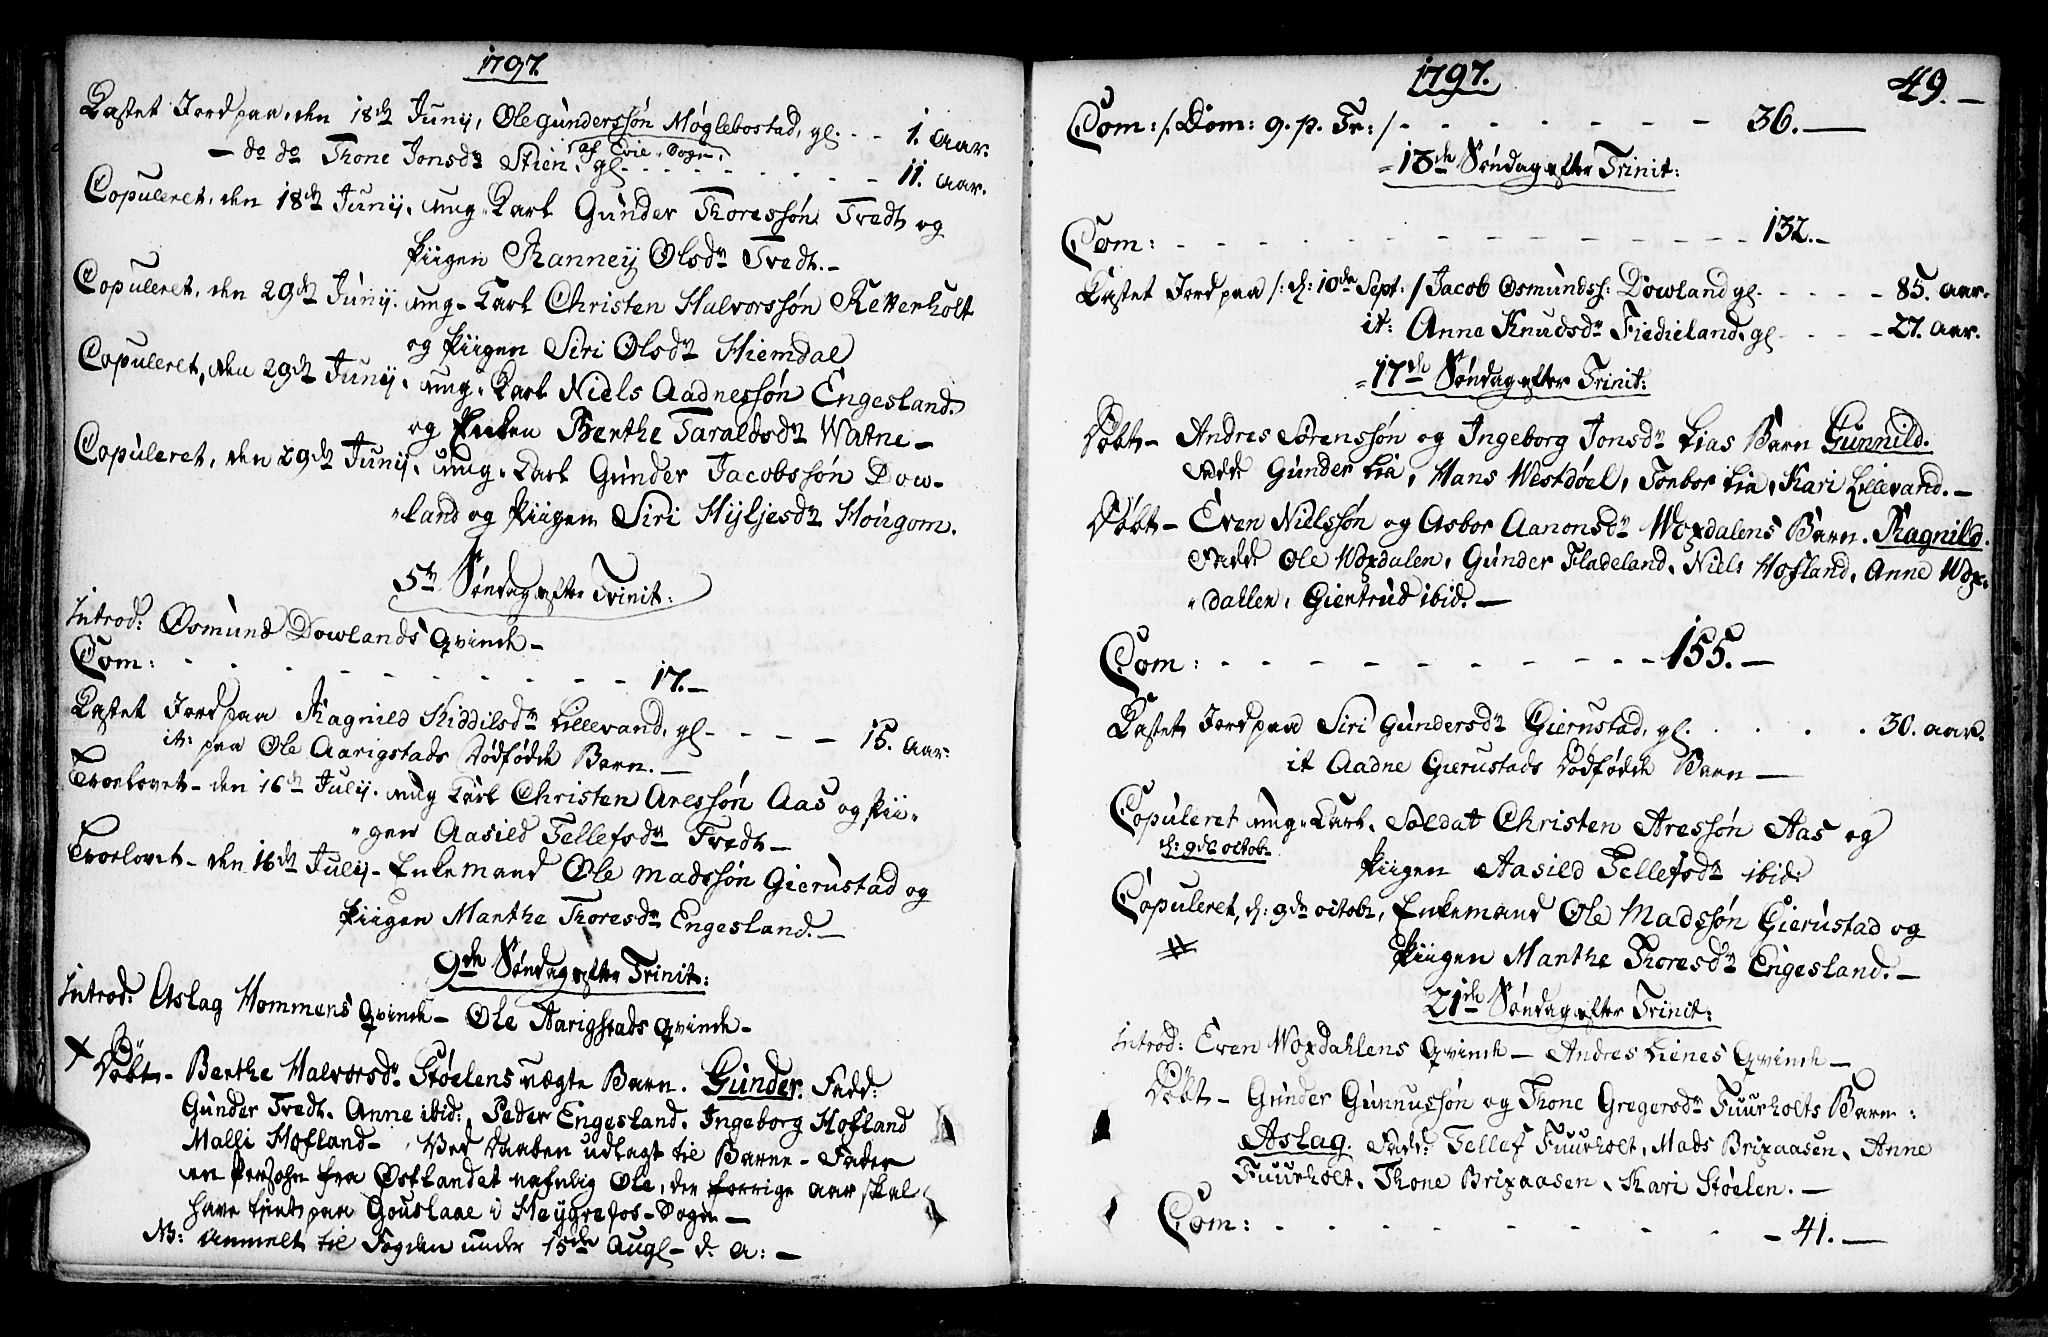 1797.
Kastet Jord paa, den 18de Junij, Ole Gunderssøn Møglebostad, gl. - - 1. Aar.
af Evie-Sogn.
- do do Thone Jonsdr Stien, gl. - - - - - - - 11. Aar.
Copuleret, den 18de Junij, ung-Karl Gunder Thoressøn Tvedt og
Piigen Ranneij Olsdr Tvedt. -
Copuleret, den 29de Junij. ung-Karl Christen Hulvorssøn Retterholt
og Piigen Siri Olsdr Hiemdal
Copuleret, den 29de Junij, ung-Karl Niels Aadnessøn Engesland.
og Piiken Berthe Taraldsdr Watne -
Copuleret, den 29de Junij, ung-Karl Gunder Jacobssøn Dow-
"land og Piigen Siri Hijljesdr Hougom.
5te Søndag efter Trinit:
Introd: Osmund Dowlands Qvinde -
Com: - - - - - - - - - 17. -
Kastet Jord paa Ragnild Kiddilsdr Lillevand, gl - - - - 15. Aar.
it: paa Ole Aarigstads Dødfødde Barn. -
Troelovet - den 16de Julij. ung Karl Christen Aressøn Aas og Pii-
"gen Aasild Tellefsdr Tvedt -
Troelovet - den 16de Julij - Enkemand Ole Madssøn Gierustad og
Piigen Marthe Thoresdr Engesland. -
9de Søndag efter Trinit:
Introd: Aslag Hommens Qvinde - Ole Aarigstads Qvinde -
Døbt - Berthe Halvorsdr Støelens uægte Barn. Gunder. Fadd:
Gunder Tvedt. Anne ibid: Peder Engesland. Ingeborg Hofland
Malli Hofland - Ved Daaben udlagt til Barne-Fader
en Persohn fra Østlandet nafnlig Ole, der forrige Aar skal
have tient paa Gouslaae i Heygrefos-Sogn -
NB: Anmelt til Fogden under 15de Augl - d. a: -
1797. 49. -
Com: /: Dom: 9. p. Tr: / - - - - - - - 36. -
13de Søndag efter Trinit:
Com: - - - - - - - - - - - - 132. -
Kastet Jord paa /: d: 10de Sept: / Jacob Osmunds: Dowland gl. - - - - 85. Aar.
it: Anne Knudsdr Fiedieland. gl - - - - 27. Aar.
17de Søndag efter Trinit:
Døbt - Andres Sørenssøn og Ingeborg Jonsdr Lias Barn Gunnild.
Fadd: Gunder Lia, Hans Westdøel, Tonbor Lia, Kari Lillevand. -
Døbt - Even Nielssøn og Asbor Aanonsdr Woxdalens Barn. Ragnild.
Fadd: Ole Woxdalen, Gunder Fladeland. Niels Hofland. Anne Wox-
"dallen, Giertrud ibid. -
Com: - - - - - - - - - 155. -
Kastet Jord paa Siri Gundersdr Gierustad, gl. . . . . 30. Aar.
it Aadne Gierustads Dødfødde Barn -
Copuleret ung-Karl, Soldat Christen Aressøn Aas og
d: 9de octobr
Piigen Aasild Tellefsdr ibid:
Copuleret, d: 9de octobr, Enkemand Ole Madssøn Gierustad og
Piigen Marthe Thoresdr Engesland. -
21de Søndag efter Trinit:
Introd: Even Woxdahlens Qvinde - Andres Lienes Qvinde -
Døbt - Gunder Gunnussøn og Thone Gregersdr Fuurholts Barn:
Aslag. Fadd: Tellef Fuurholt, Mads Brixaasen, Anne
Fuurholt, Thone Brixaasen, Kari Støelen. -
Com: - - - - - - - - 41. -